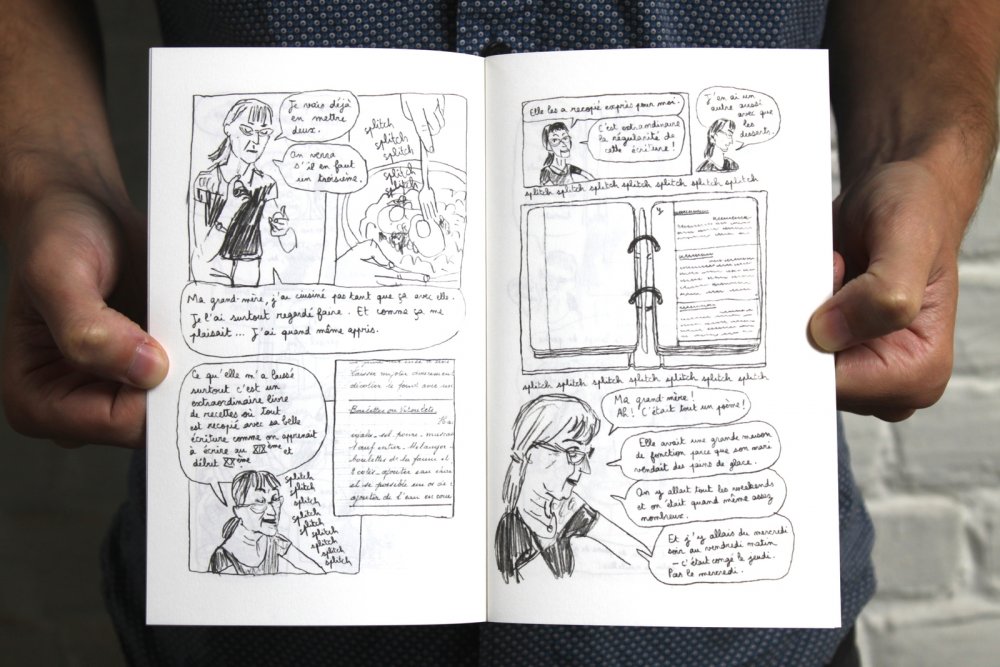 Je vais déjà
en mettre
deux.
On verra
s'il en faut
un troisième.
splitch
splitch
splitch
splitch
splitch
splitch
splitch
Ma grand-mère, j'ai cuisiné pas tant que ça avec elle.
Je l'ai surtout regardé faire. Et comme ça me
plaisait... J'ai quand même appris.
Ce qu'elle m'a laissé
surtout c'est un
extraordinaire livre
de recettes où tout
est recopié avec sa belle
écriture comme on apprenait
à écrire au XIXème et
début XXème.
splitch
splitch
splitch
splitch
splitch
splitch
splitch
splitch
laisser mijoter doucement
dévolier le fond avec un
Boulettes ou
œufs, sel, poivre, muscade
1 œuf entier. Mélanger
boulettes de la farine et
ajouter eau
et si possible un os de
ajouter de l'eau en cour
Elle les a recopié exprès pour moi.
C'est extraordinaire
la régularité de
cette écriture!
J'en ai un
autre aussi
avec que
les
desserts.
splitch splitch splitch splitch splitch splitch splitch
splitch splitch splitch splitch splitch splitch splitch
Ma grand-mère!
Ah! C'était tout un poème!
Elle avait une grande maison
de fonction parce que son mari
vendait des pains de glace.
On y allait tout les weekends
et on était quand même assez
nombreux.
Et j'y allais du mercredi
soir au vendredi matin
- c'était congé le jeudi.
Pas le mercredi.